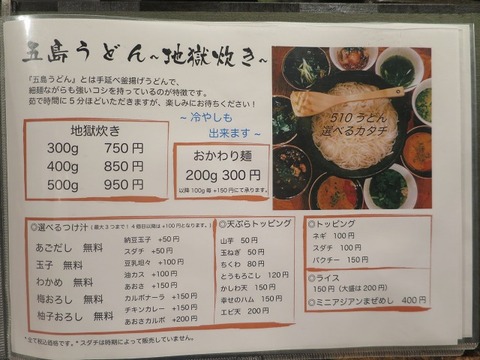 五島うどん~地獄炊き~
「五島うどん」とは手延べ釜揚げうどんで、
細麺ながらも強いコシを持っているのが特徴です。
茹で時間に5分ほどいただきますが、楽しみにお待ちください!
~ 冷やしも
出来ます ~
510 うどん
選べるカタチ
地獄炊き
300g 750円
400g 850円
500g 950円
おかわり麺
200g 300円
以降 100g 毎 +150円にて承ります。
◎選べるつけ汁(最大3つまで!4個目以降は +100円となります。)
あごだし 無料
玉子 無料
わかめ 無料
梅おろし 無料
柚子おろし 無料
納豆玉子 +50円
スダチ +50円
豆乳坦々 +100円
油カス +100円
あおさ +150円
カルボナーラ +150円
チキンカレー +150円
あおさカルボ +200円
◎天ぷらトッピング
山芋 50円
玉ねぎ 50円
ちくわ 80円
とうもろこし 120円
かしわ天 150円
幸せのハム 150円
エビ天 200円
◎トッピング
ネギ 100円
スダチ 100円
パクチー 150円
◎ライス
150円(大盛は 200円)
◎ミニアジアンまぜめし 400円
*全て税込価格です。*スダチは時期によって販売していません。